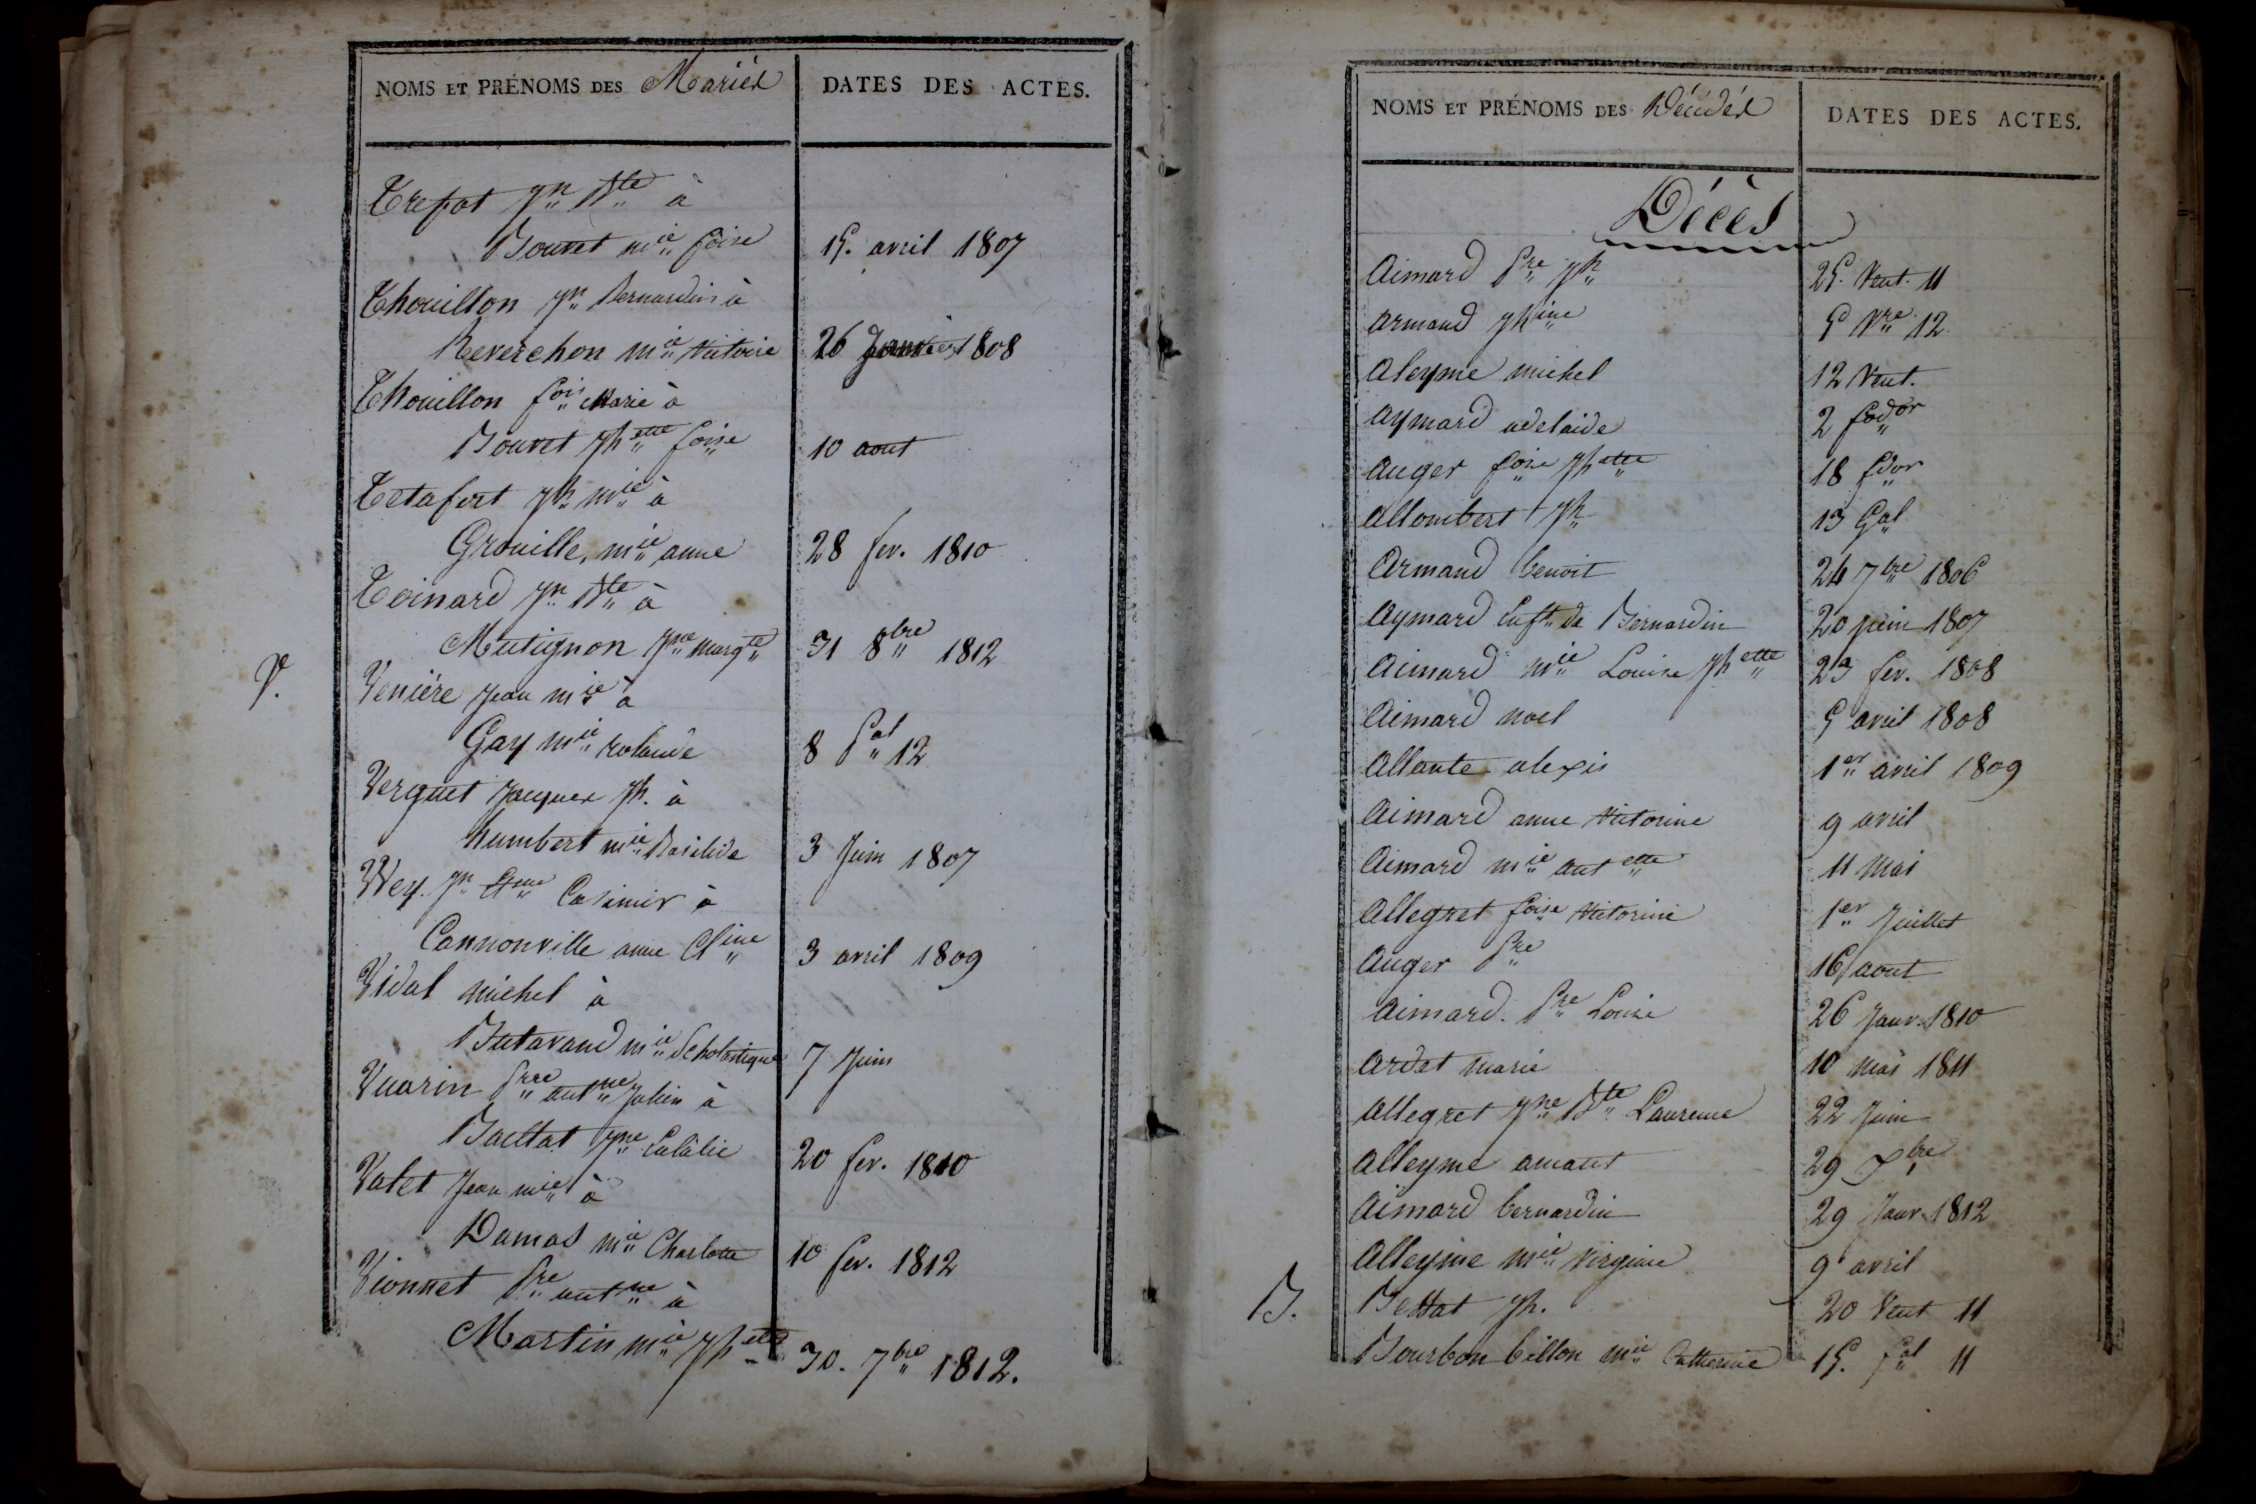 NOMS ET PRÉNOMS DES Mariés
DATES DES ACTES.
Trepat Jn Bte à
Bouvet mie foise 15. avril 1807
Thouillon Jn Bernardin à
Reverchon mie Victoire 26 Janvier 1808
Thouillon fois Marie à
Bouvet Jhette foise 10 aout
Tetafort Jh mie à
Grouille, mie anne 28 fev. 1810
Toinard Jn Bte à
Mutignon Jne Margte 31 8bre 1812
V.
Veniére Jean mie à
Gay mie rolande 8 Pal 12
Verguet Jacques Jh. à
humbert mie Basilide 3 Juin 1807
Vey. Jn Casimir à
Cannonville anne Cline 3 avril 1809
Vidal michel à
Butavand mie Scholastique 7 Juin
Vuarin Prre antne Julien à
Baillat Jne Eulalie 20 fev. 1810
Valet Jean mie à
Damas mie Charlotte 10 fev. 1812
Vionnet Pre antne à
Martin mie Jhette 30. 7bre 1812.
NOMS ET PRÉNOMS DES Décédés
DATES DES ACTES.
Décès
Aimard Pre Jh 25. Vent. 11
Armand Jhine 5 Vre 12
Aleyme michel 12 Vent.
Aymard adelaide 2 fdor
Auger foise Jhette 18 fdor
Allombert Jh 13 Gal
Armand benoit 24 7bre 1806
Aymard Enft de Bernardin 20 juin 1807
Aimard mie Louise Jhette 23 fev. 1808
Aimard noel 5 avril 1808
Allante alexis 1er avril 1809
Aimard anne Victorine 9 avril
Aimard mie antette 11 mai
Allegret foise Victorine 1er Juillet
Auger Pre 16 aout
Aimard. Pre Louise 26 Janv. 1810
Ardet marie 10 mai 1811
Allegret Jne Bte Laurence 22 Juin
Alleyme amant 29 Xbre
Aimard bernardin 29 Janv. 1812
Alleyme mie Virginie 9 avril
B.
Bettat Jh. 20 Vent 11
Bourbon billon mie Catherine 15. fal 11